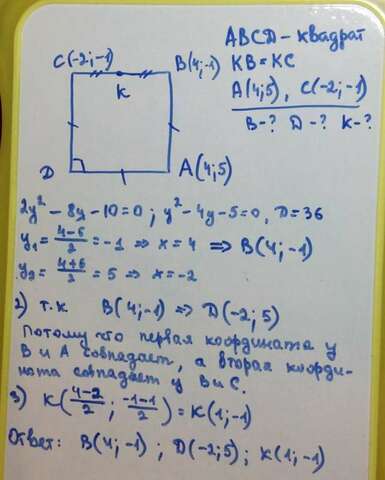 ABCD - квадрат
C(-2;-1) B(4;-1) KB = KC
K A(4;5), C(-2;-1)
B-? D-? K-?
D A(4;5)
2y² - 8y - 10 = 0; y² - 4y - 5 = 0, D = 36
y₁ = (4-6)/2 = -1 ⇒ x = 4 ⇒ B(4;-1)
y₂ = (4+6)/2 = 5 ⇒ x = -2
2) т.к B(4;-1) ⇒ D(-2;5)
Потому что первая координата у
B и A совпадает, а вторая коорди-
ната совпадает у B и C.
3) K((4-2)/2; (-1-1)/2) = K(1;-1)
Ответ: B(4;-1); D(-2;5); K(1;-1)